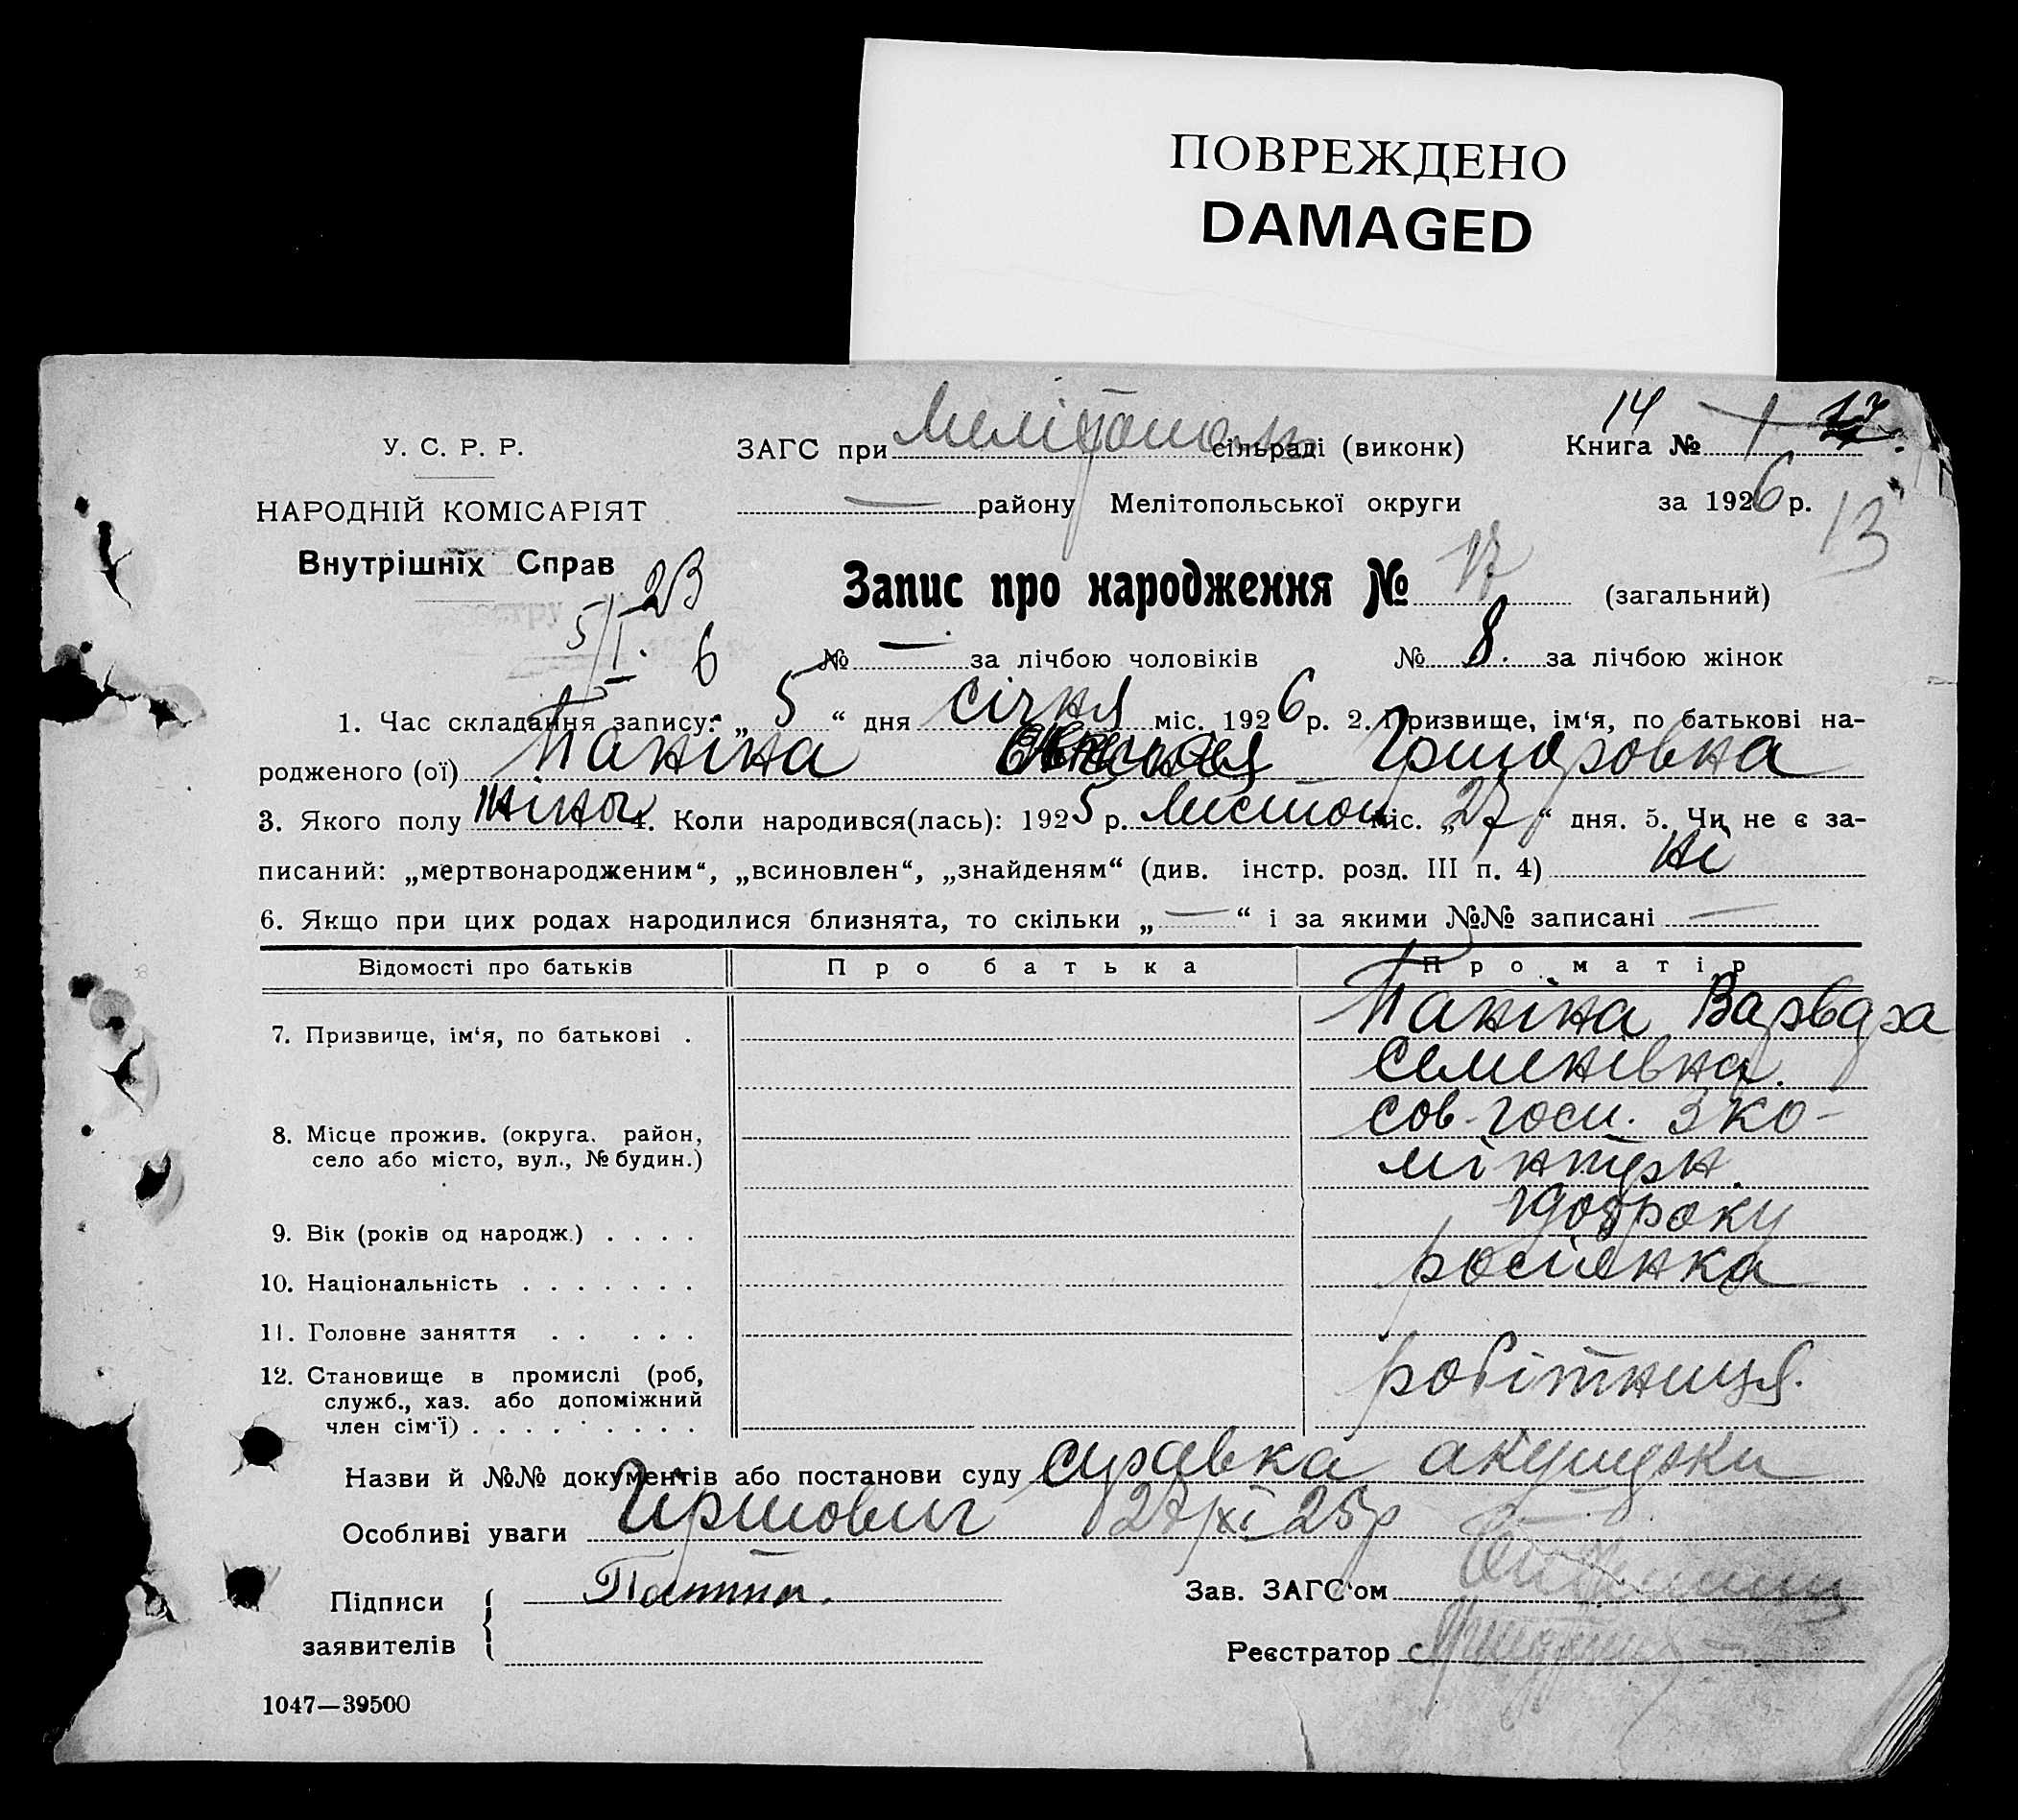 ПОВРЕЖДЕНО
DAMAGED
У. С. Р. Р.
ЗАГС при Мелітополь сільраді (виконк)
14
Книга № 1
НАРОДНІЙ КОМІСАРІЯТ
— району Мелітопольської округи
за 1926 р.
13
Внутрішніх Справ
Запис про народження № 17 (загальний)
5/I. 6
№ — за лічбою чоловіків № 8. за лічбою жінок
1. Час складання запису: „ 5 “ дня січня міс. 1926 р. 2. Призвище, ім'я, по батькові на-
родженого (ої) Паніна Григоровна
3. Якого полу жіноч 4. Коли народився(лась): 1925 р. Листоп міс. „ 27 “ дня. 5. Чи не є за-
писаний: „мертвонародженим“, „всиновлен“, „знайденям“ (див. інстр. розд. III п. 4) ні
6. Якщо при цих родах народилися близнята, то скільки „ — “ і за якими №№ записані —
Відомості про батьків Про батька Про матір
7. Призвище, ім'я, по батькові . Паніна Варвара
Семенівна.
8. Місце прожив. (округа, район,
село або місто, вул., № будин.)
сов-госп. 3 ко-
мінтерн.
9. Вік (років од народж.) . . . . року
10. Національність . . . . . . . росіянка
11. Головне заняття . . . . .
12. Становище в промислі (роб,
служб., хаз. або допоміжний
член сім'ї) . . . . . . . . .
робітниця.
Назви й №№ документів або постанови суду справка акушерки
Особливі уваги Гиршович 27/XI 25р
Підписи
заявителів
Зав. ЗАГС'ом
Реєстратор
1047—39500